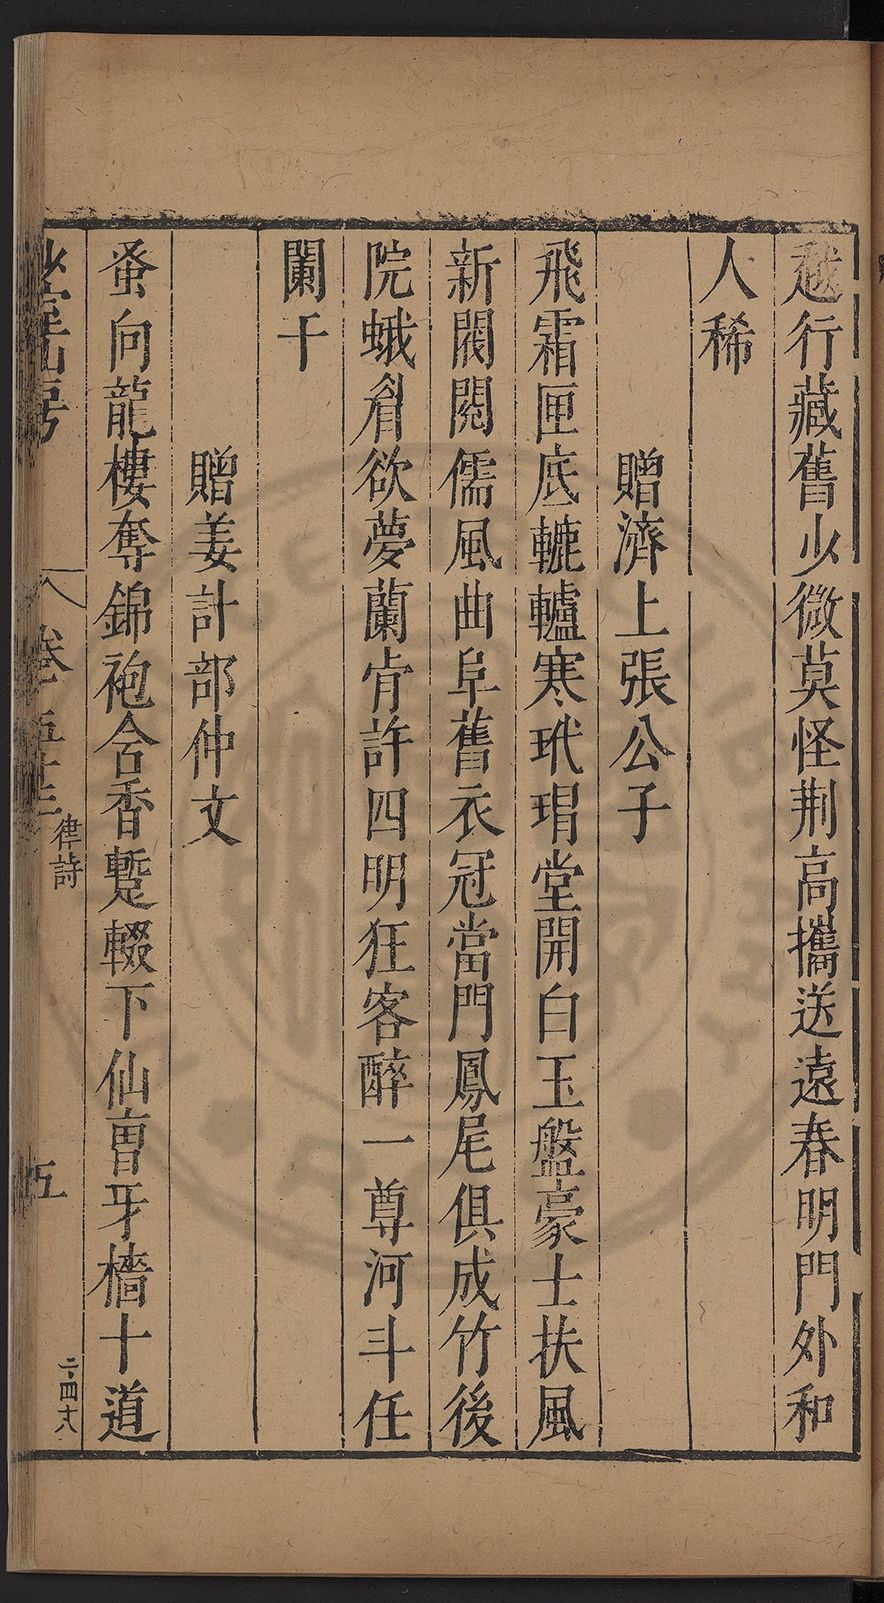 趑行藏舊少微莫怪荆高攜送遠春明門外和
人稀
贈濟上張公子
飛霜匣底轆轤寒玳瑁堂開白玉盤豪士扶風
新閥閱儒風曲阜舊衣冠當門鳳尾俱成竹後
院蛾眉欲夢蘭肯許四明狂客醉一尊河斗任
闌干
贈姜計部仲文
蚤向龍樓奪錦袍含香蹔輟下仙曹牙檣十道
山房
卷五十三
律詩
五
二四十八